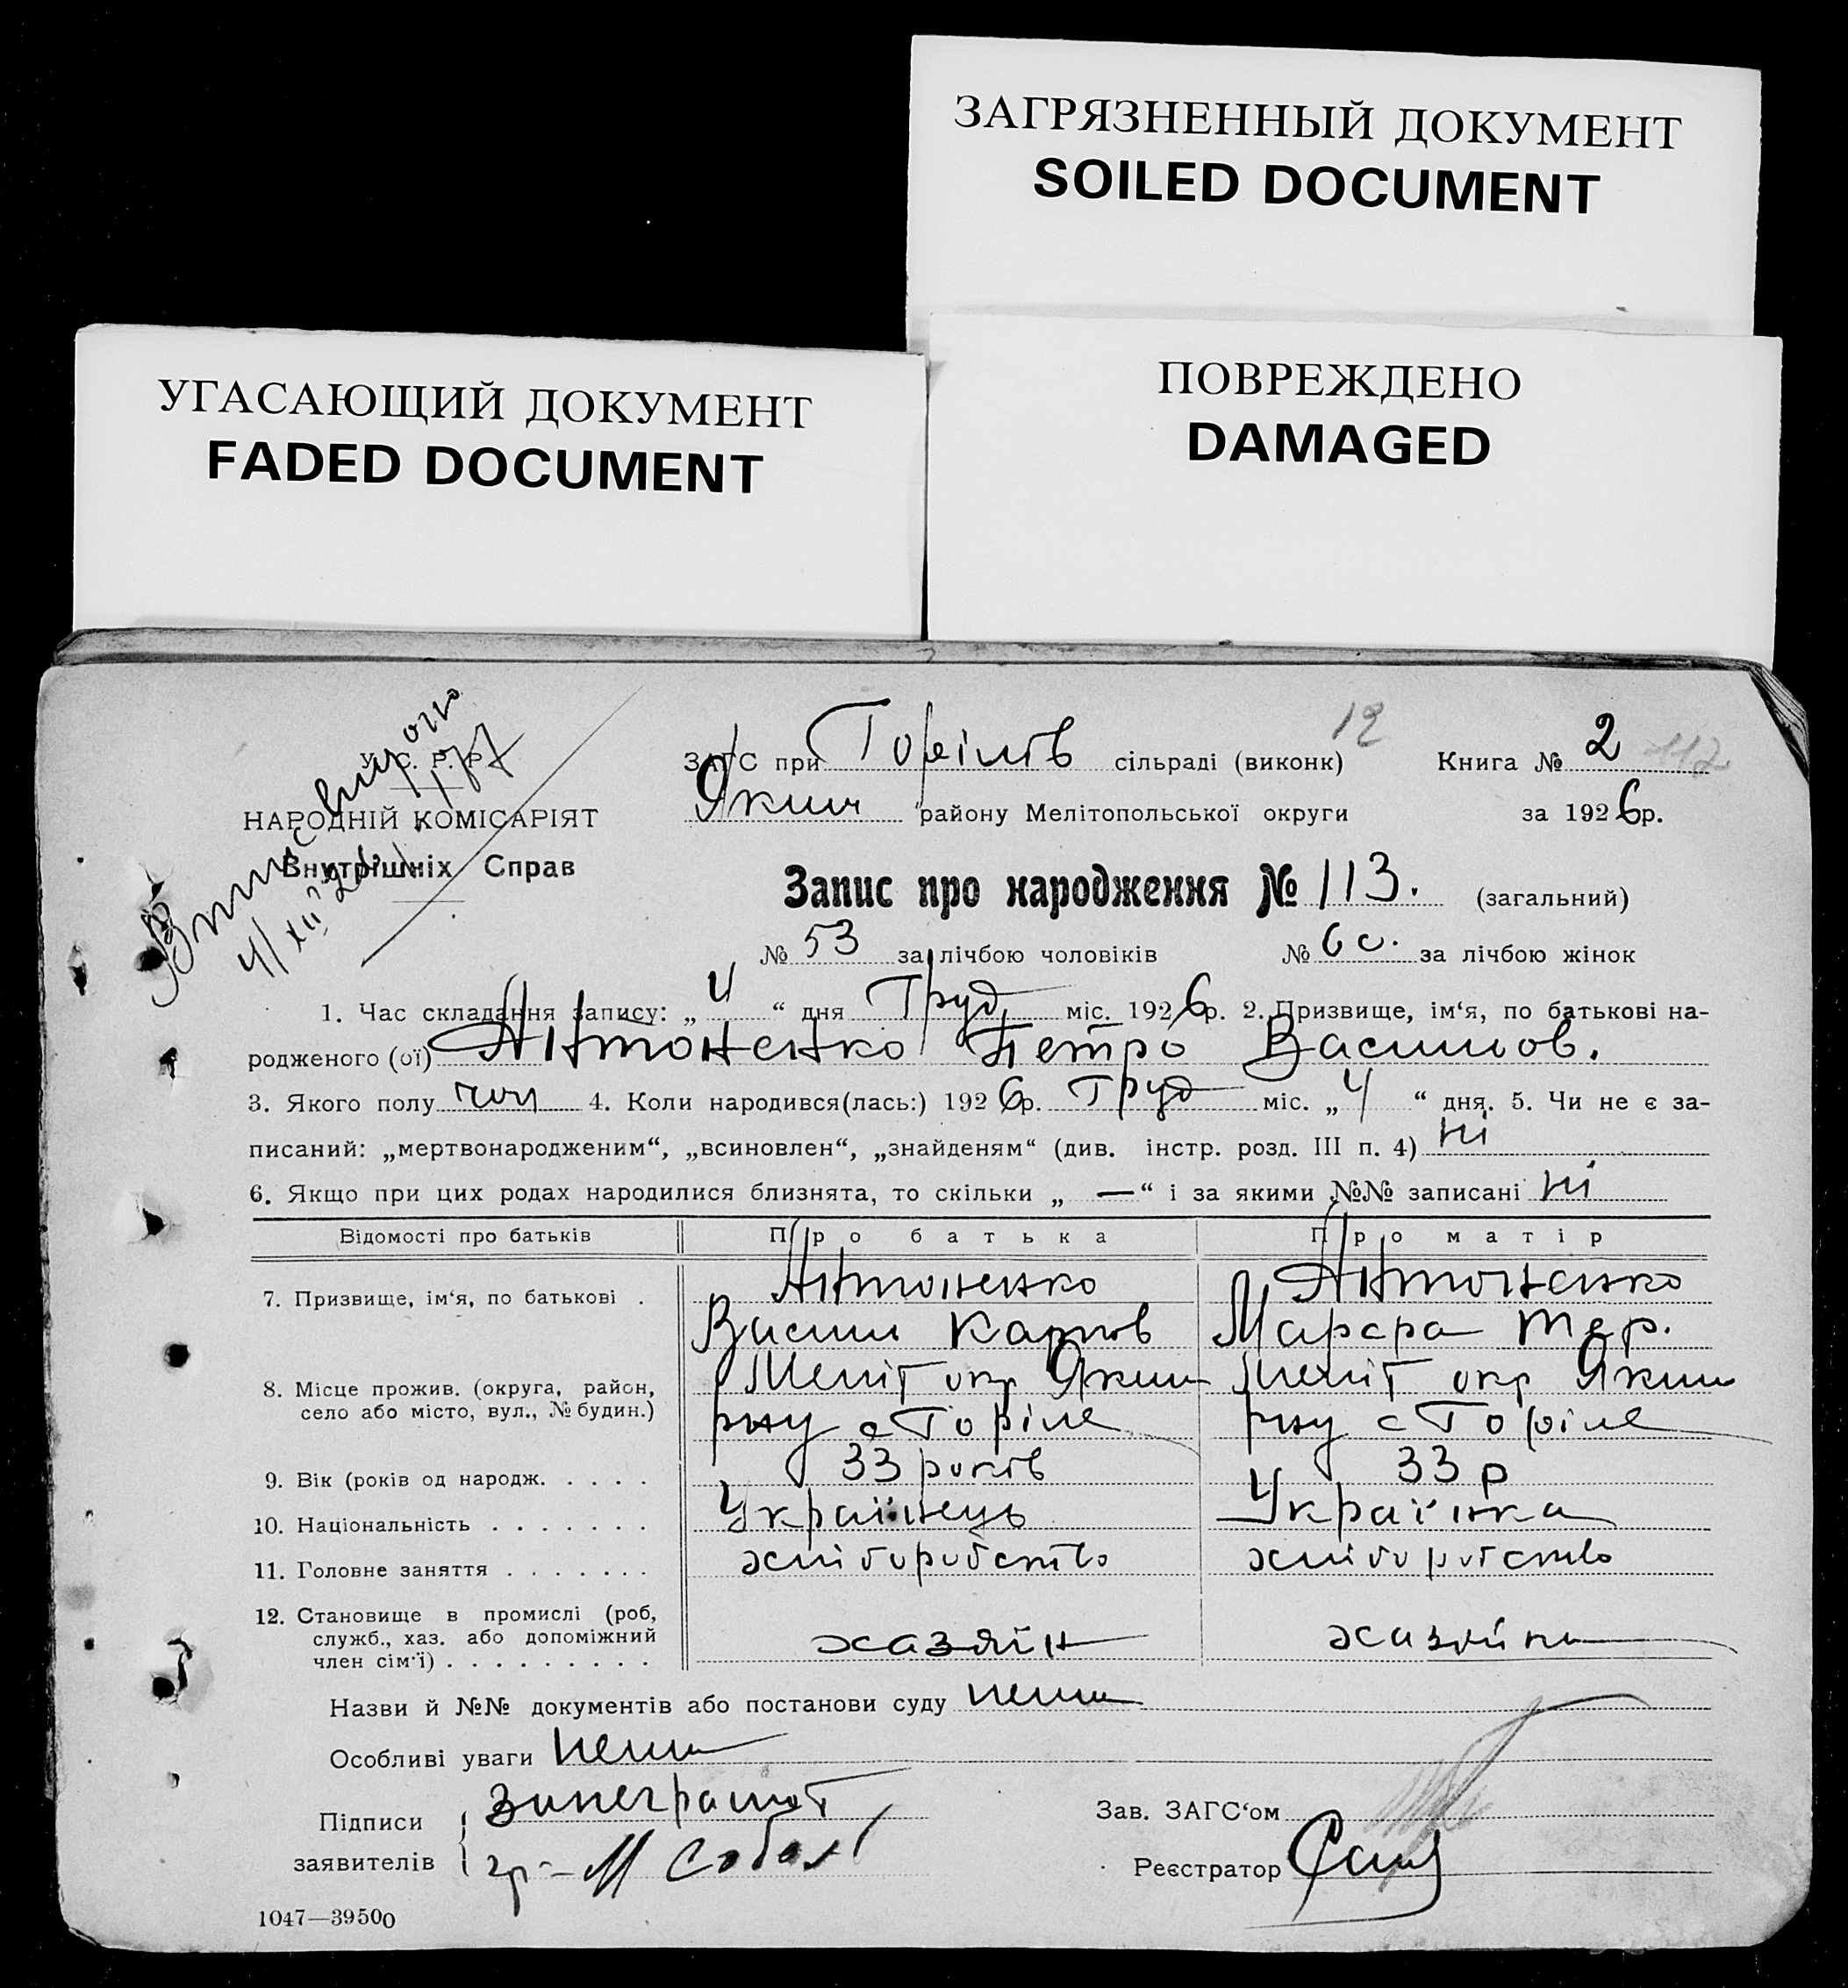 ЗАГРЯЗНЕННЫЙ ДОКУМЕНТ
SOILED DOCUMENT
УГАСАЮЩИЙ ДОКУМЕНТ
FADED DOCUMENT
ПОВРЕЖДЕНО
DAMAGED
У. С. Р. Р.
НАРОДНІЙ КОМІСАРІЯТ
Внутрішніх Справ
4/XII
ЗАГС при Горілів сільраді (виконк) 12 Книга № 2 112
Яким району Мелітопольської округи за 1926р.
Запис про народження № 113. (загальний)
№ 53 за лічбою чоловіків № 60. за лічбою жінок
1. Час складання запису: „ 4 “ дня Груд міс. 1926р. 2. Призвище, ім‘я, по батькові на-
родженого (ої) Антоненко Петро Василов.
3. Якого полу чол 4. Коли народився(лась:) 1926р. Груд міс. „ 4 “ дня. 5. Чи не є за-
писаний: „мертвонародженим“, „всиновлен“, „знайденям“ (див. інстр. розд. III п. 4) ні
6. Якщо при цих родах народилися близнята, то скільки „ — “ і за якими №№ записані ні
Відомості про батьків Про батька Про матір
7. Призвище, ім‘я, по батькові . Антоненко Антоненко
Васил Карпов Марфа
8. Місце прожив. (округа, район, Меліт окр Яким Меліт окр Яким
село або місто, вул., № будин.) рну с Горіле рну с Горіле
9. Вік (років од народж. . . . . 33 років 33 р
10. Національність . . . . . . . Українець Українка
11. Головне заняття . . . . . . . хліборобство хліборобство
12. Становище в промислі (роб,
служб., хаз. або допоміжний хазяїн хазяйка
член сім‘ї) . . . . . . . . .
Назви й №№ документів або постанови суду нема
Особливі уваги нема
Підписи за неграмот Зав. ЗАГС‘ом
заявителів гр- М Собол Реєстратор
1047—39500